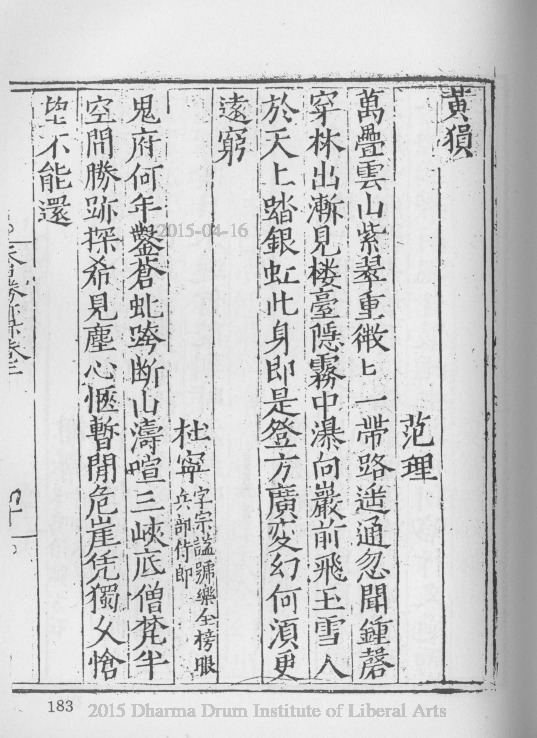 黃猽
范理
萬疊雲山紫翠重微〻一帶路逶通忽聞鍾磬
穿林出漸見楼臺隠霧中瀑向巖前飛玉雪人
於天上踏銀虹此身即是登方廣变幻何湏更
遠窮
杜寧 字宗謐號樂全榜眼
兵部侍郎
鬼府何年鑿蒼虬跨断山濤喧三峽底僧梵半
空間勝跡探希見塵心愜暫閒危崖凭獨久愴
不能還
2015-04-16
183
2015 Dharma Drum Institute of Liberal Arts